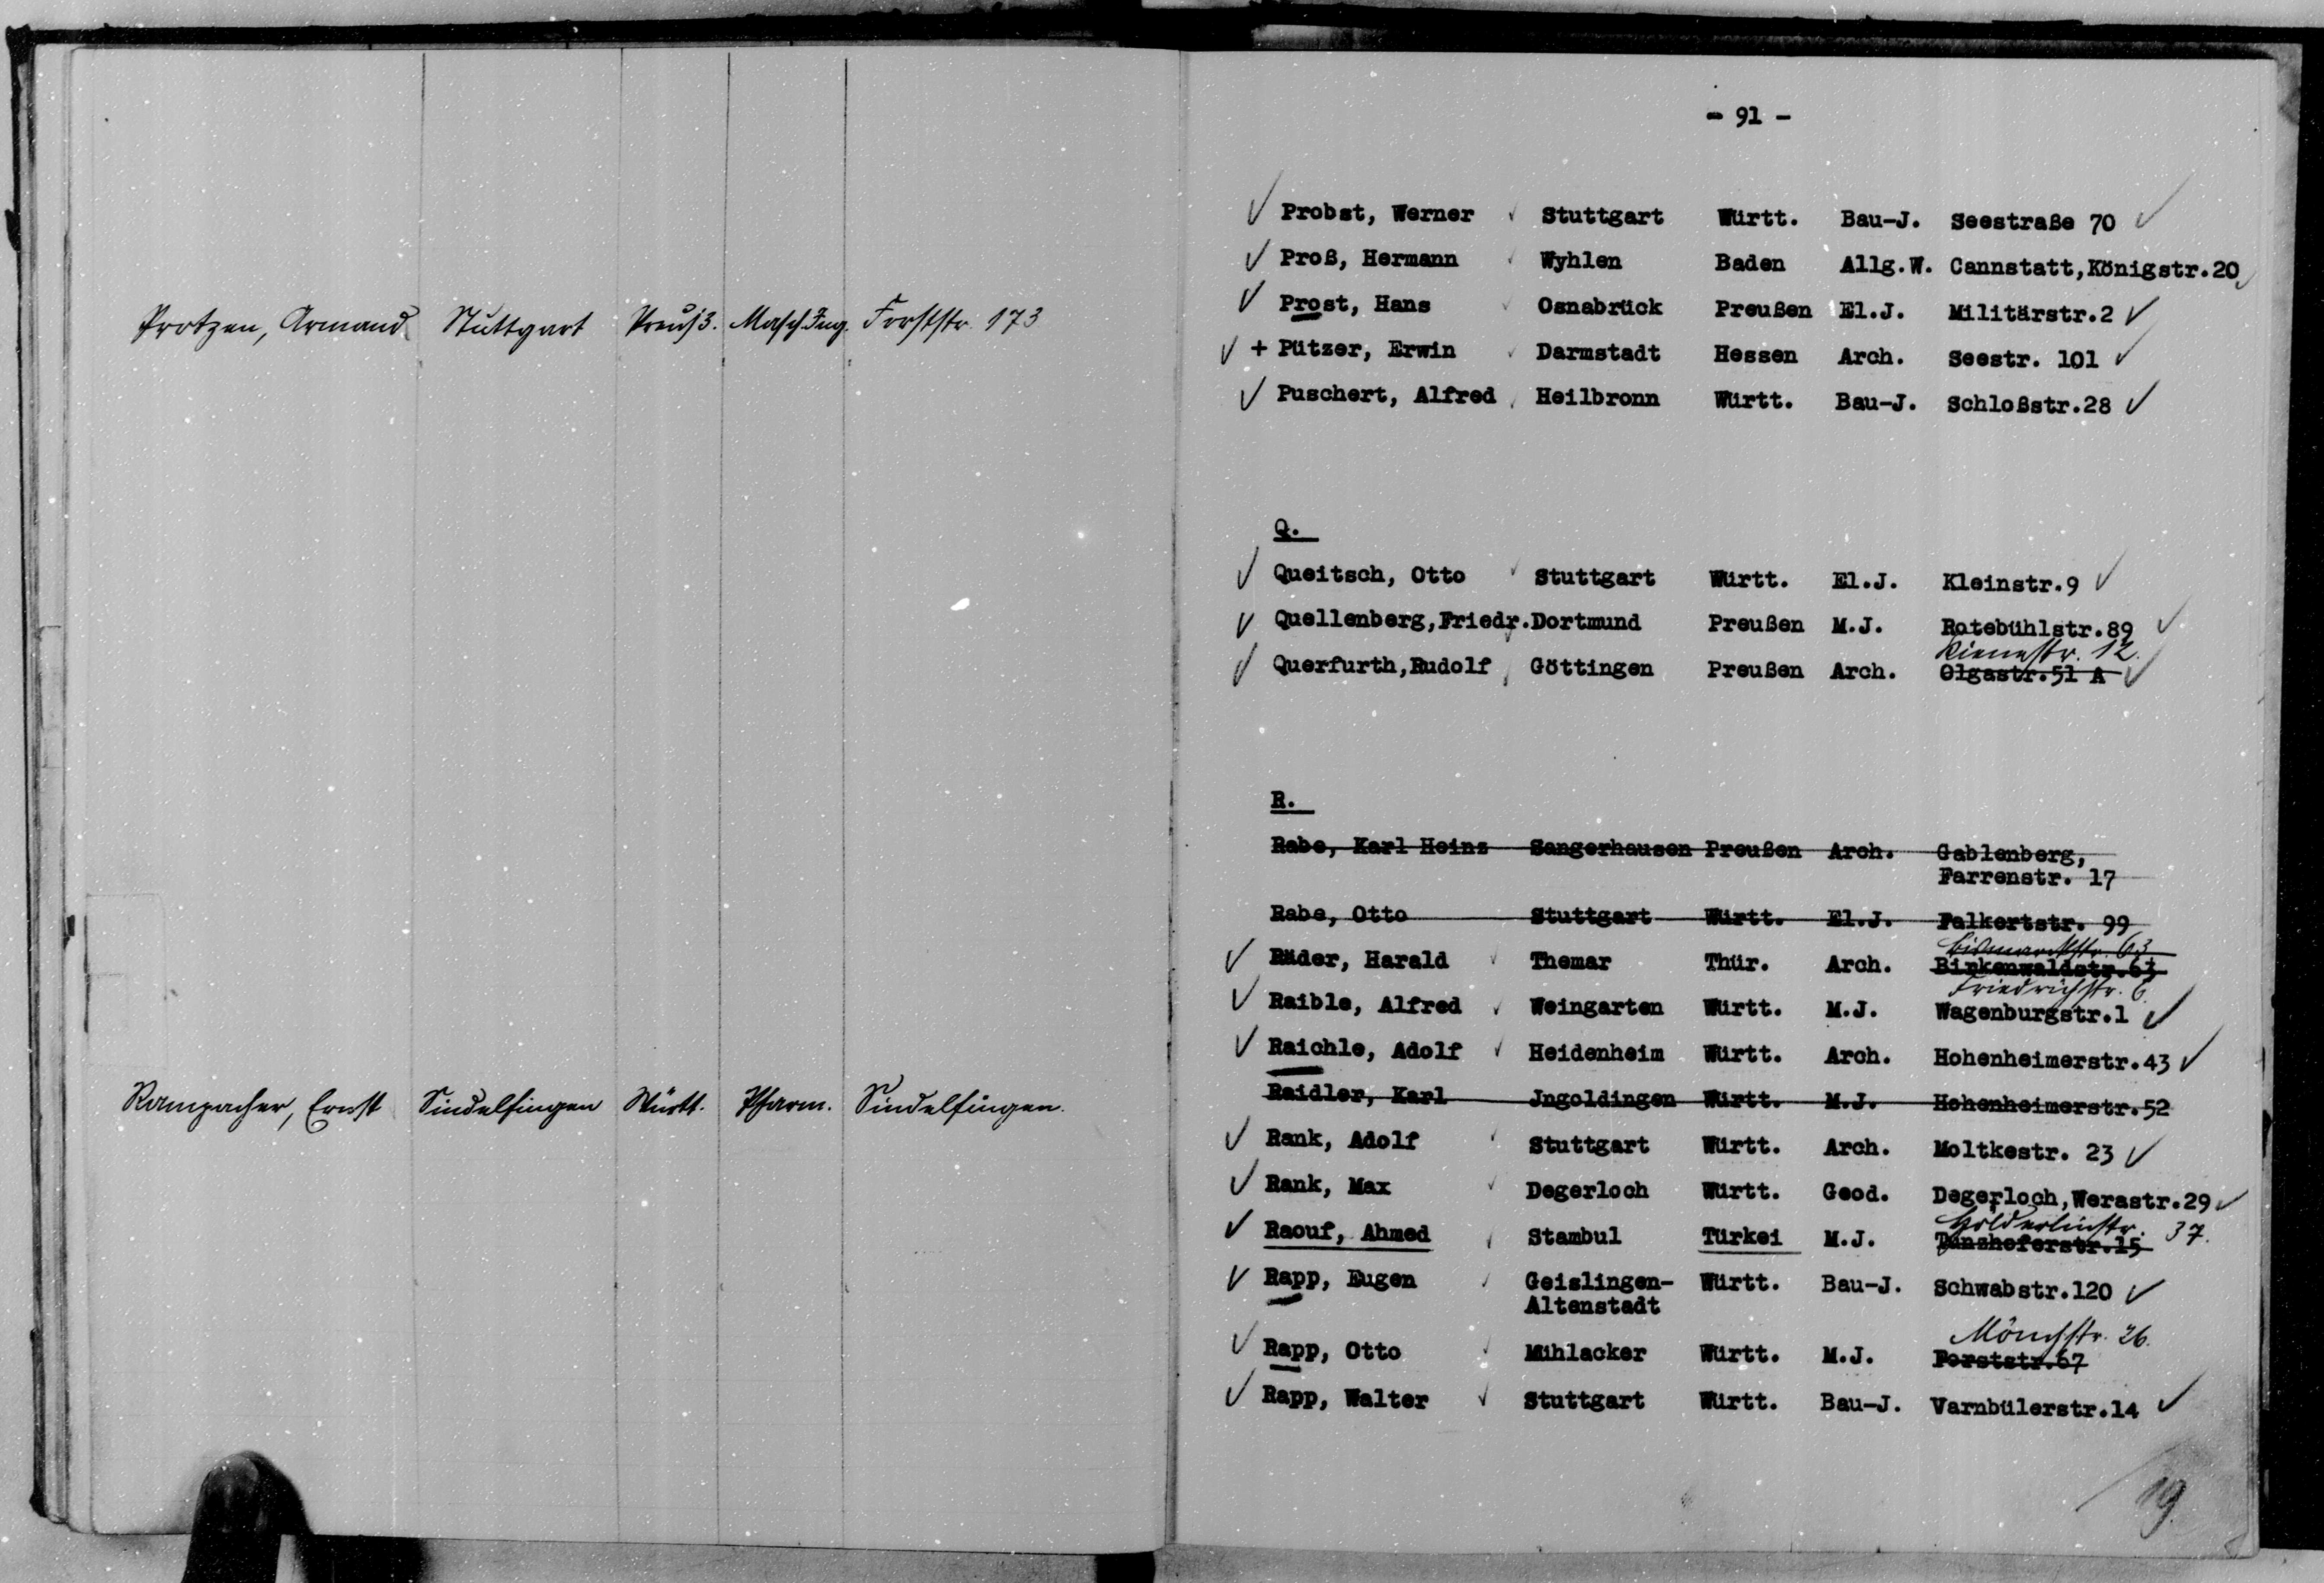 Protzen, Armand Stuttgart Preuß. Masch.Ing. Forststr. 173
Rampacher, Ernst Sindelfingen Württ. Pharm. Sindelfingen.
- 91 -
Probst, Werner Stuttgart Württ. Bau-J. Seestraße 70
Proß, Hermann Wyhlen Baden Allg.W. Cannstatt,Königstr.20
Prost, Hans Osnabrück Preußen El.J. Militärstr.2
+ Pützer, Erwin Darmstadt Hessen Arch. Seestr. 101
Puschert, Alfred Heilbronn Württ. Bau-J. Schloßstr.28
Q.
Queitsch, Otto Stuttgart Württ. El.J. Kleinstr.9
Quellenberg,Friedr. Dortmund Preußen M.J. Rotebühlstr.89
Kienestr. 12.
Querfurth,Rudolf Göttingen Preußen Arch. Olgastr.51 A
R.
Rabe, Karl Heinz Sangerhausen Preußen Arch. Gablenberg,
Farrenstr. 17
Rabe, Otto Stuttgart Württ. El.J. Falkertstr. 99
Bismarckstr. 63
Räder, Harald Themar Thür. Arch. Birkenwaldstr.63
Friedrichstr. 6.
Raible, Alfred Weingarten Württ. M.J. Wagenburgstr.1
Raichle, Adolf Heidenheim Württ. Arch. Hohenheimerstr.43
Raidler, Karl Jngoldingen Württ. M.J. Hohenheimerstr.52
Rank, Adolf Stuttgart Württ. Arch. Moltkestr. 23
Rank, Max Degerloch Württ. Geod. Degerloch,Werastr.29
Hölderlinstr. 37.
Raouf, Ahmed Stambul Türkei M.J. Tunzhoferstr.15
Rapp, Eugen Geislingen- Württ. Bau-J. Schwabstr.120
Altenstadt
Mönchstr. 26.
Rapp, Otto Mühlacker Württ. M.J. Forststr.67
Rapp, Walter Stuttgart Württ. Bau-J. Varnbülerstr.14
19.